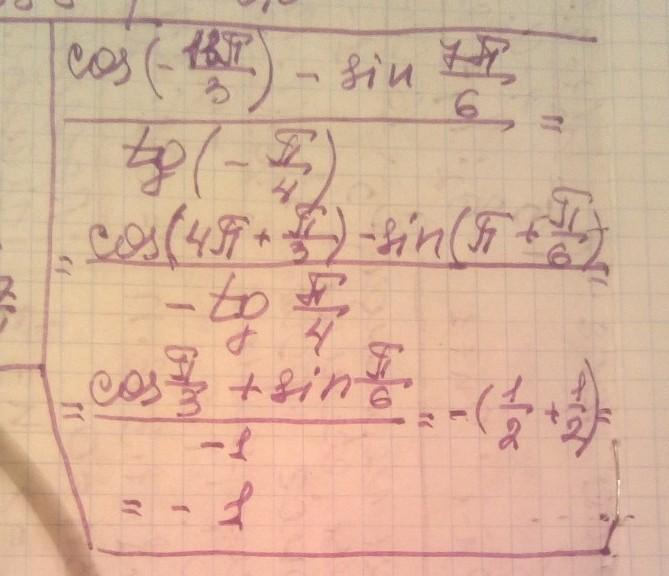 cos(-13π/3) - sin 7π/6
tg(-π/4) =
= cos(4π + π/3) - sin(π + π/6) =
- tg π/4
= cos π/3 + sin π/6 = -(1/2 + 1/2) =
-1
= - 1